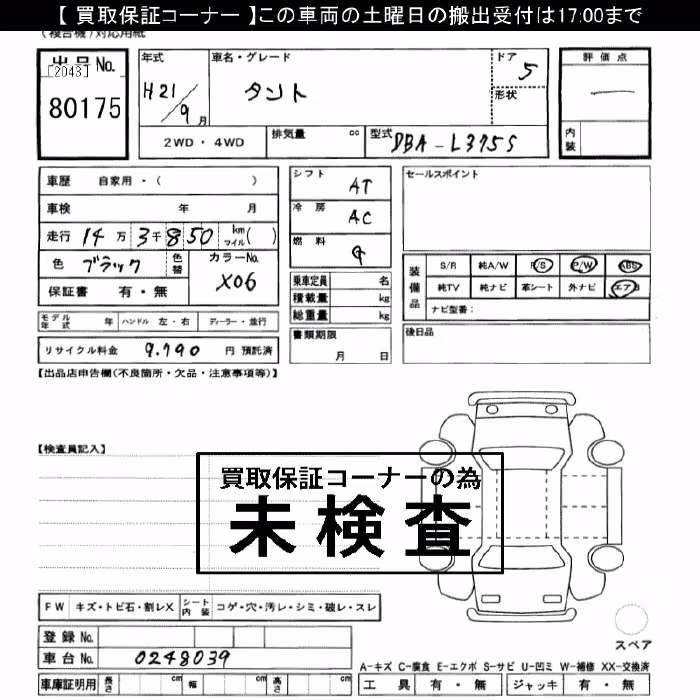 【 買取保証コーナー 】この車両の土曜日の搬出受付は17:00まで
(複合機)対応用紙
出品No.
[2043]
80175
年式
H21/9月
車名・グレード
タント
ドア
5
形状
評価点
—
内装
2WD・4WD
排気量 cc
型式 DBA-L375S
車歴 自家用・( )
車検 年 月
走行 14万3千850 km マイル( )
色 ブラック 色替 カラーNo. X06
保証書 有・無
シフト AT
冷房 AC
燃料 G
乗車定員 名
積載量 kg
総重量 kg
書類期限
月 日
セールスポイント
装備品
S/R 純A/W P/S P/W ABS
純TV 純ナビ 革シート 外ナビ エアB
ナビ型番:
後日品
モデル年式 年 ハンドル 左・右 ディーラー・並行
リサイクル料金 9.790 円 預託済
【出品店申告欄(不良箇所・欠品・注意事項等)】
【検査員記入】
買取保証コーナーの為
未検査
FW キズ・トビ石・割レX シート内装 コゲ・穴・汚レ・シミ・破レ・スレ
登録No.
車台No. 0248039
車庫証明用 長さ cm 幅 cm 高さ cm
スペア
A-キズ C-腐食 E-エクボ S-サビ U-凹ミ W-補修 XX-交換済
工具 有・無 ジャッキ 有・無